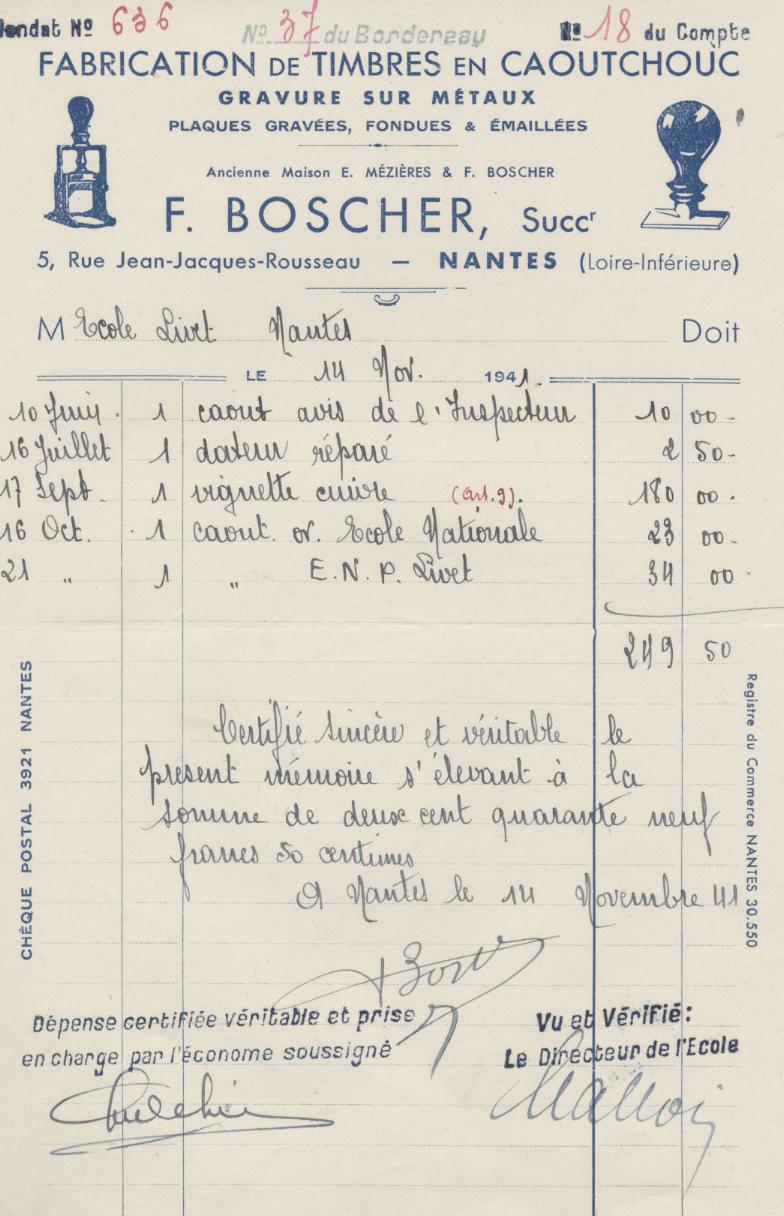 Mandat Nº 636 Nº 37 du Bordereau Nº 18 du Compte
FABRICATION DE TIMBRES EN CAOUTCHOUC
GRAVURE SUR MÉTAUX
PLAQUES GRAVÉES, FONDUES & ÉMAILLÉES
Ancienne Maison E. MÉZIÈRES & F. BOSCHER
F. BOSCHER, Succr
5, Rue Jean-Jacques-Rousseau — NANTES (Loire-Inférieure)
M Ecole Livet Nantes Doit
LE 14 Nov. 1941.
10 Juin. 1 caout avis de l'Inspecteur 10 00-
16 Juillet 1 dateur réparé 2 50-
17 Sept. 1 vignette cuivre (art. 9). 180 00.
16 Oct. 1 caout. or. Ecole Nationale 23 00-
21 " 1 " E.N.P. Livet 34 00.
249 50
Certifié sincère et véritable le
présent mémoire s'élevant à la
somme de deux cent quarante neuf
francs 50 centimes
A Nantes le 14 Novembre 41
CHÈQUE POSTAL 3921 NANTES
Registre du Commerce NANTES 30.550
Dépense certifiée véritable et prise
en charge par l'économe soussigné
Vu et Vérifié:
Le Directeur de l'Ecole